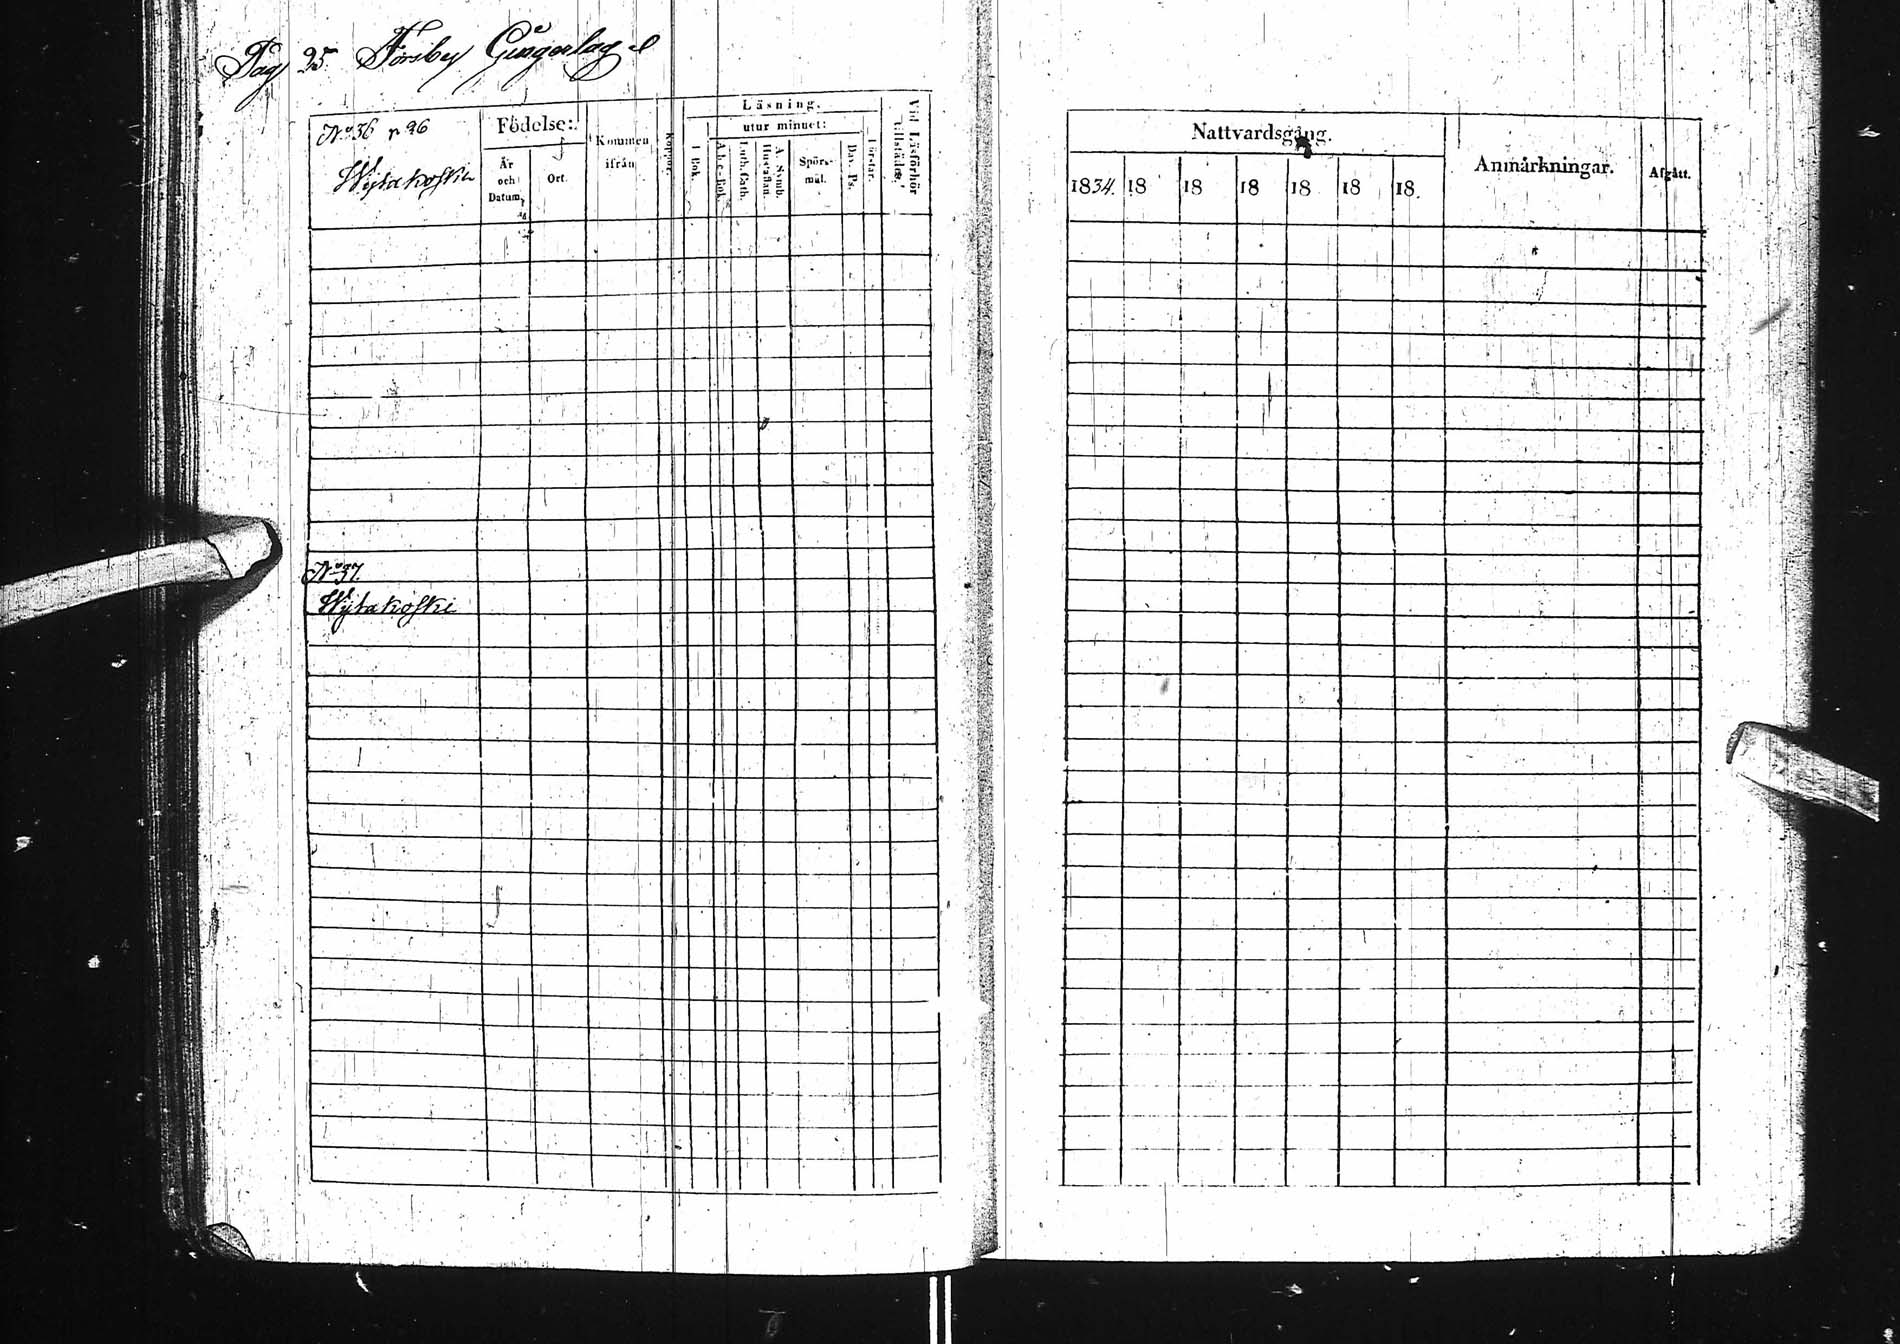 Pag 25. Forsby Gingerlag
No 36 r 26
Wijtakoski
Födelse:
År och Datum,
Ort.
Kommen ifrån
Koppor.
Läsning.
utur minuet:
I Bok.
A-b-c-Bok.
Luth. Cath.
Hustaflan.
A. Symb.
Spörs-mål.
Dav. Ps.
Förstår.
Vid Läsförhör tillstädes.
No 37.
Wijtakoski
Nattvardsgång.
1834. 18 18 18 18 18 18.
Anmärkningar.
Afgått.